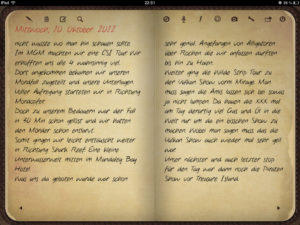 iPad
22:51
Mittwoch, 10. Oktober 2012
nicht wusste wo man hin schauen sollte.
Im MGM machten wir eine CSI Tour. Wir
erhofften uns alle 4 wahnsinnig viel.
Dort angekommen bekamen wir unseren
Mordfall zugeteilt und unsere Unterlagen.
Voller Aufregung starteten wir in Richtung
Mordaffäre.
Doch zu unserem Bedauern war der Fall
in 40 Min schon gelöst und wir hatten
den Mörder schon entlarvt.
Somit gingen wir leicht enttäuscht weiter
in Richtung Shark Reef. Eine kleine
Unterwasserwelt mitten im Mandalay Bay
Hotel.
Was uns da geboten wurde war schon
sehr genial. Angefangen von Alligatoren
über Rochen die wir anfassen durften
bis hin zu Haien.
Weiter ging die wilde Strip Tour zu
der Vulkan Show vorm Mirage. Man
muss sagen die Amis lassen sich bei sowas
ja nicht lumpen. Da bauen die XXX mal
am Tag derartig viel Gas und Öl in die
Welt nur um da ein bisschen Show zu
machen. Wobei man sagen muss das die
Vulkan Show auch wieder mal sehr geil
war.
Unser nächster und auch letzter stop
für den Tag war dann noch die Piraten
Show vor Treasure Island.